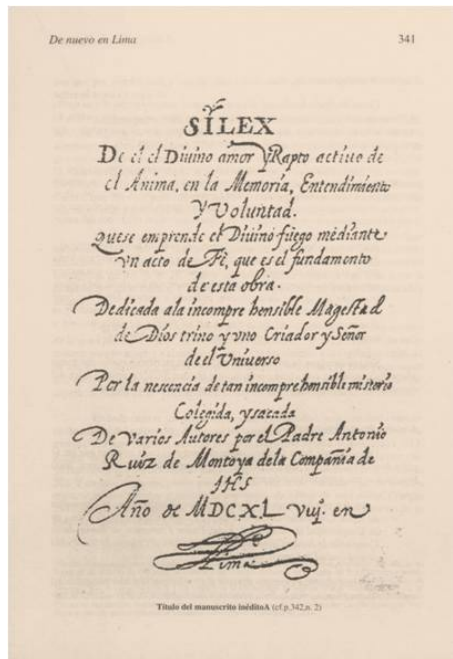 De nuevo en Lima 341
SÍLEX
De el Divino amor y Rapto activo de
el Anima, en la Memoria, Entendimiento
y Voluntad.
Que se emprende el Divino fuego mediante
vn acto de Fi, que es el fundamento
de esta obra.
Dedicada ala incomprehensible Magestad
de Dios trino y vno Criador y Señor
de el Vniverso
Por la nesciencia de tan incomprehensible misterio
Colegida, y sacada
De varios Autores por el Padre Antonio
Ruiz de Montoya dela Compañia de
IHS
Año de MDCXL viij. en
Lima
Título del manuscrito inéditoA (cf.p.342,n. 2)